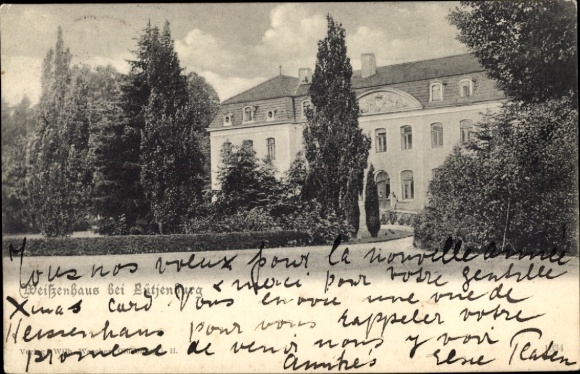 Tous nos veux pour la nouvelle année
Weißenhaus bei Lütjenburg
& merci pour votre gentille
Xmas card Vous envoie une vue de
Heissenhaus pour vous rappeler votre
promesse de venir nous y voir
Amitiés Elsie Platen